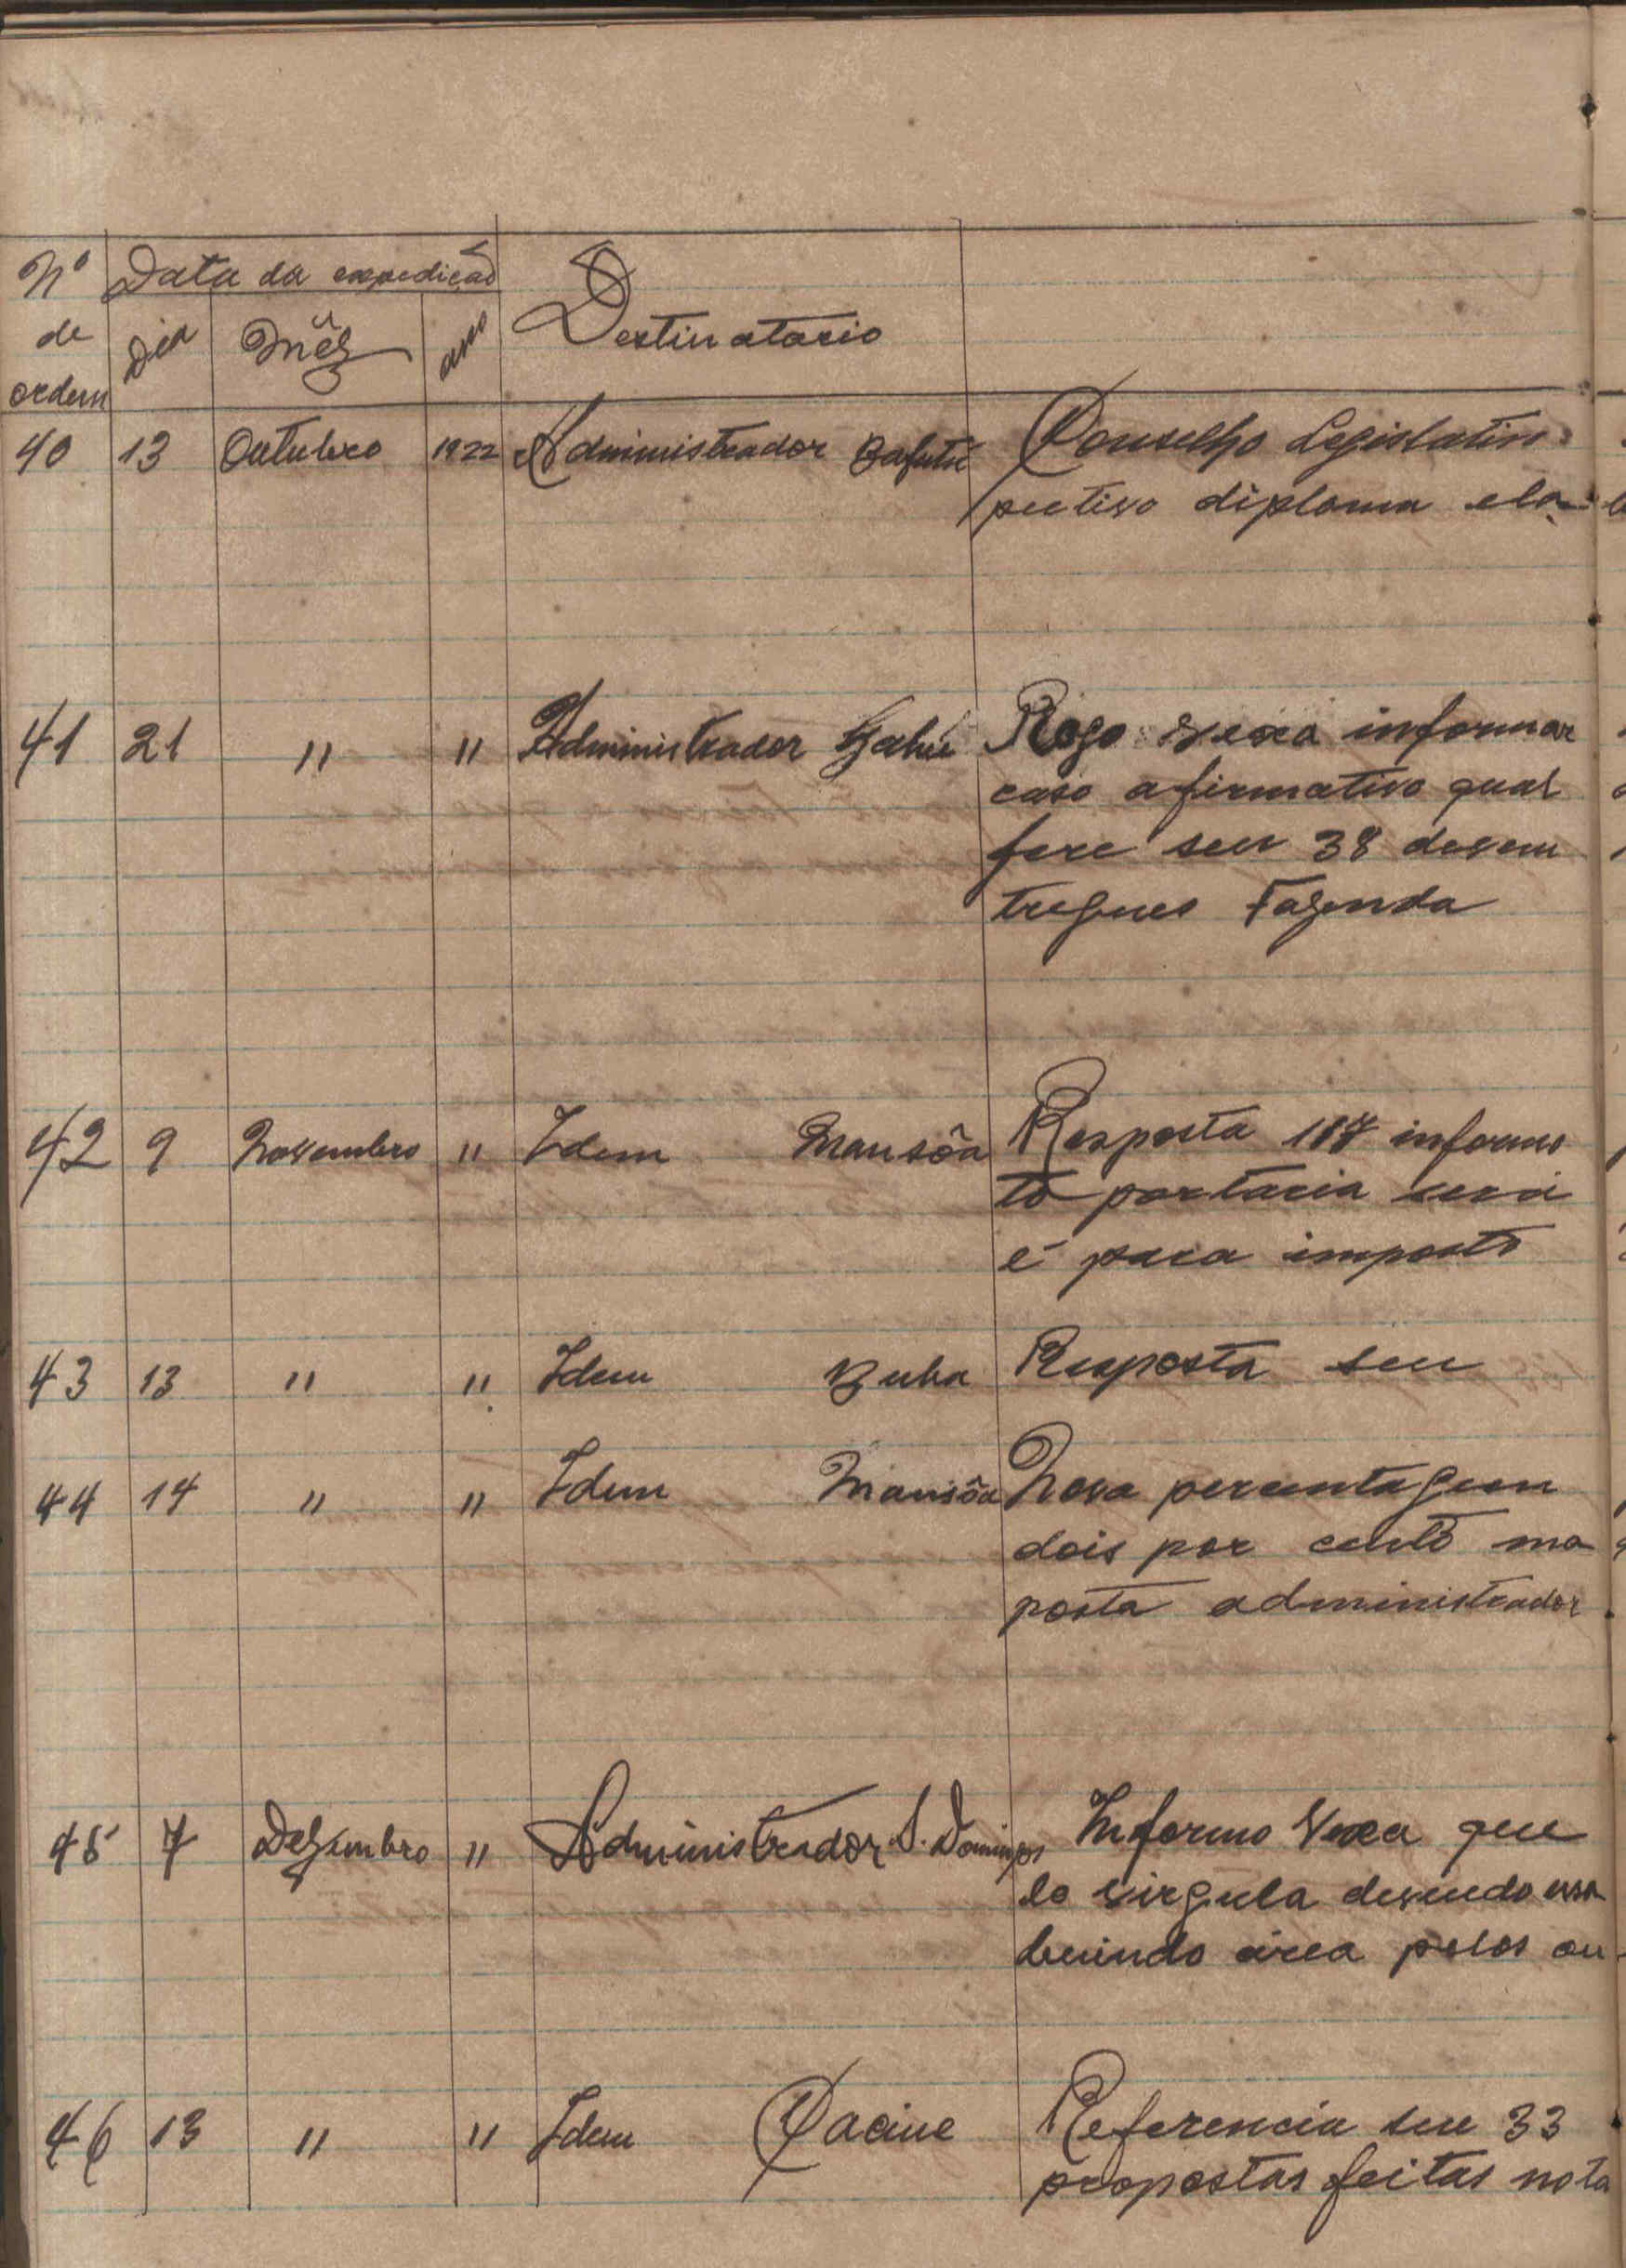 Nº Data da expedição
de Dia Mês ano Destinatario
ordem
40 13 Outubro 1922 Administrador Bafatá Conselho Legislativo
pectivo diploma ela
41 21 " " Administrador Gabú Rogo Vexa informar
caso afirmativo qual
fere seu 38 devem
tregues Fazenda
42 9 Novembro " Idem Mansôa Resposta 187 informo
to portaria será
é para imposto
43 13 " " Idem Buba Resposta seu
44 14 " " Idem Mansôa Nova percentagem
dois por cento ma
posta administrador
45 7 Dezembro " Administrador S. Domingos Informo Vexa que
lo virgula devendo essa
buindo área pelos ou
46 13 " " Idem Cacine Referencia seu 33
propostas feitas nota